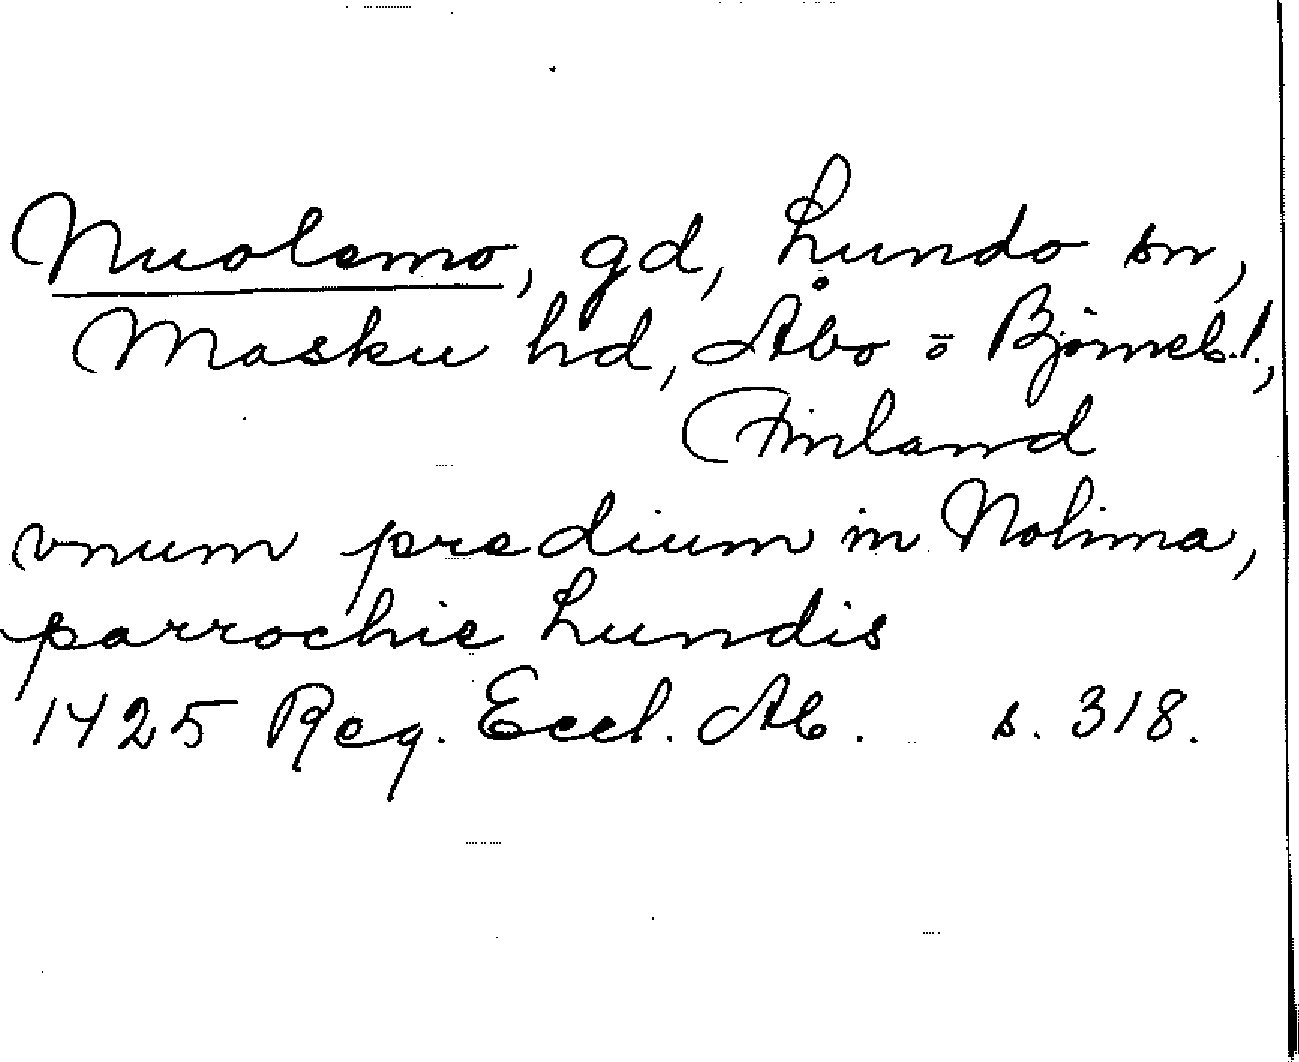 Nuolemo, gd, Lundo sn,
Masku hd, Åbo o Björneb.l.,
Finland
vnum predium in Nolima,
parrochie Lundis
1425 Reg. Eccl. Ab. s. 318.